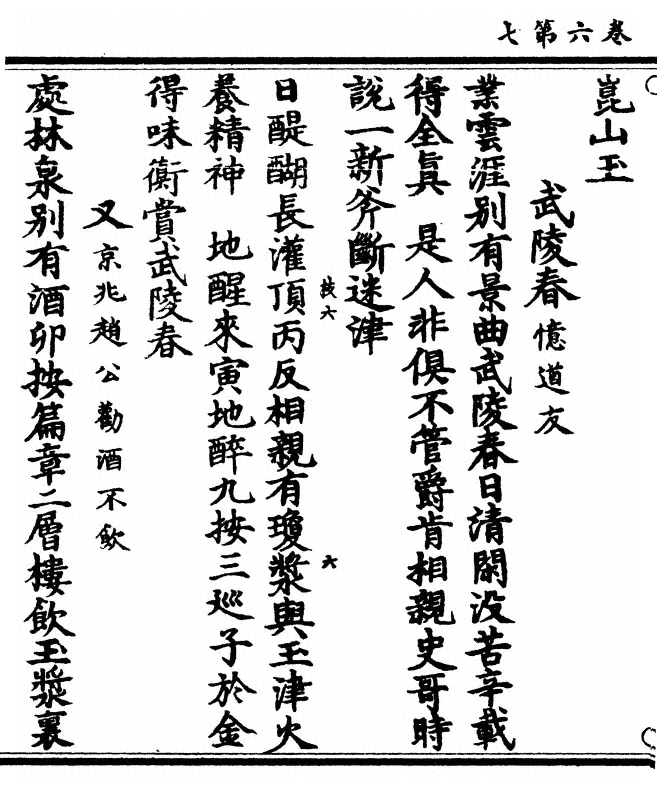 卷六第七
崑山玉
武陵春憶道友
業雲涯別有景曲武陵春日清閑没苦辛載
得全眞 是人非俱不管爵肯相親史哥時
說一新斧斷迷津
日醍醐長灌頂丙反相親有瓊漿與玉津火
養精神 地醒來寅地醉九按三巡子於金
得味衡賞武陵春
又京兆趙公勸酒不飲
處林泉別有酒卯按篇章二層樓飲玉漿裏